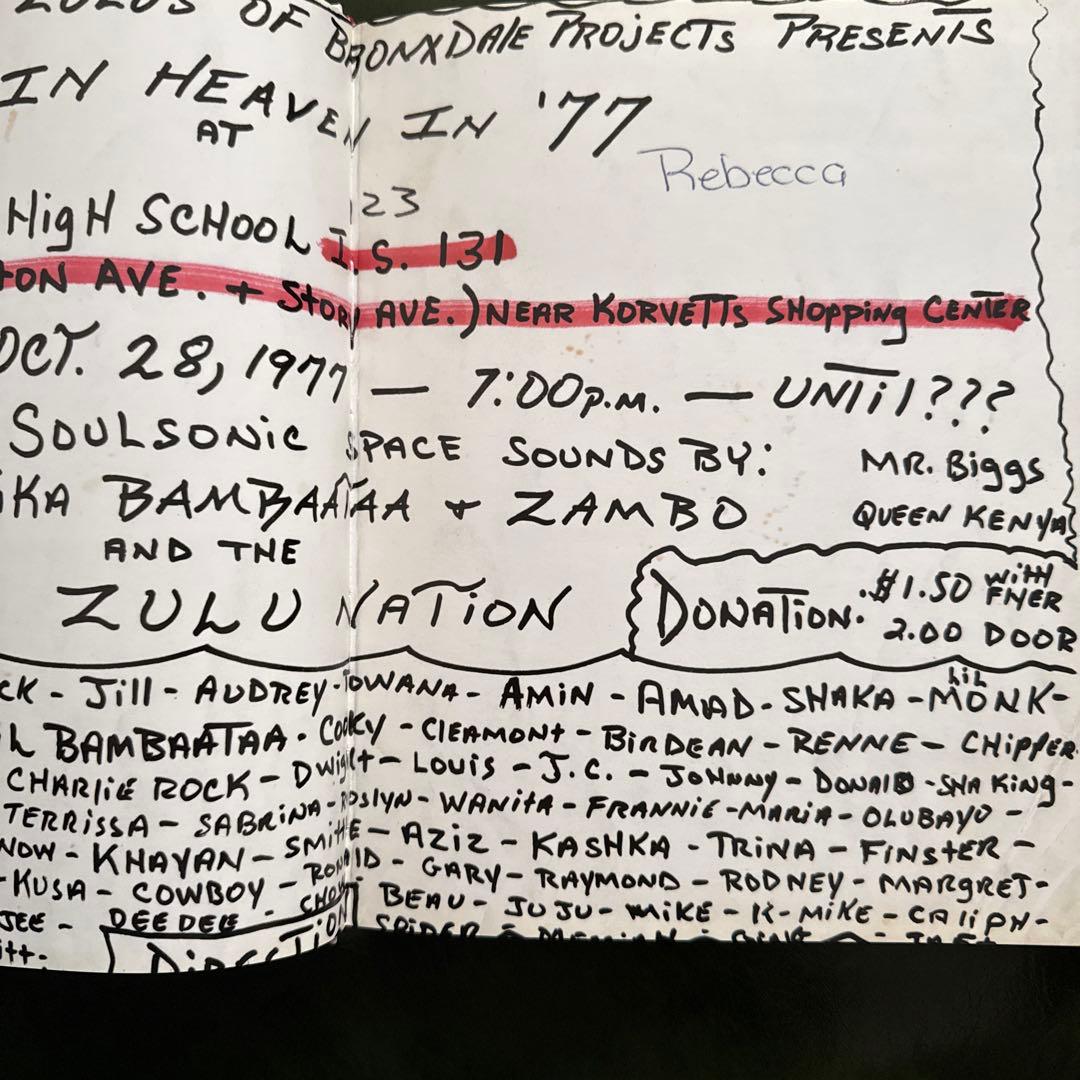 OF BRONXDALE PROJECTS PRESENTS
IN HEAVEN IN '77
AT
Rebecca
123
HIGH SCHOOL I.S. 131
TON AVE. + STORY AVE.) NEAR KORVETTS SHOPPING CENTER
OCT. 28, 1977 — 7:00 P.M. — UNTIL???
SOULSONIC SPACE SOUNDS BY: MR. BIGGS
IKA BAMBAATAA + ZAMBO QUEEN KENYA
AND THE
ZULU NATION
DONATION. $1.50 WITH FLYER
2.00 DOOR
CK - JILL - AUDREY - TOWANA - AMIN - AMAD - SHAKA - LIL MONK -
L BAMBAATAA - COOKY - CLEAMONT - BIRDEAN - RENNE - CHIPPER
CHARLIE ROCK - DWIGHT - LOUIS - J.C. - JOHNNY - DONALD - SHA KING -
TERRISSA - SABRINA - ROSLYN - WANITA - FRANNIE - MARIA - OLUBAYO -
NOW - KHAYAN - SMITTE - AZIZ - KASHKA - TRINA - FINSTER -
KUSA - COWBOY - RONALD - GARY - RAYMOND - RODNEY - MARGRET -
JEE - DEE DEE - BEAU - JUJU - MIKE - K-MIKE - CALIPH -
ITT. DIRECTION SPIDER